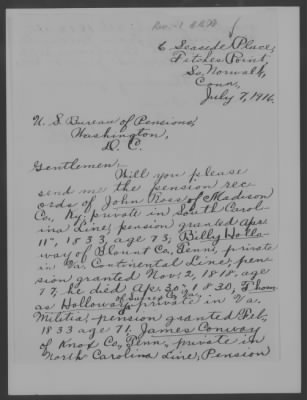 6 Seaside Place,
Fitches Point,
So. Norwalk,
Conn.
July 7, 1916.
U. S. Bureau of Pensions,
Washington,
D. C.
Gentlemen:-
Will you please
send me the pension rec-
ords of John Ross of Madison
Co., Ky. private in South Carol-
ina Line, pension granted Apr.
11", 1833, age 73, Billy Hollo-
way of Blount Co. Tenn., private
in Va. Continental Line, pen-
sion granted Nov. 2, 1818, age
77, he died Apr. 30" 1830, Thom-
as Holloway of Co. Va. private in Va.
Militia, pension granted Feb,
1833 age 71. James Conway
of Knox Co, Tenn, private in
North Carolina Line, Pension